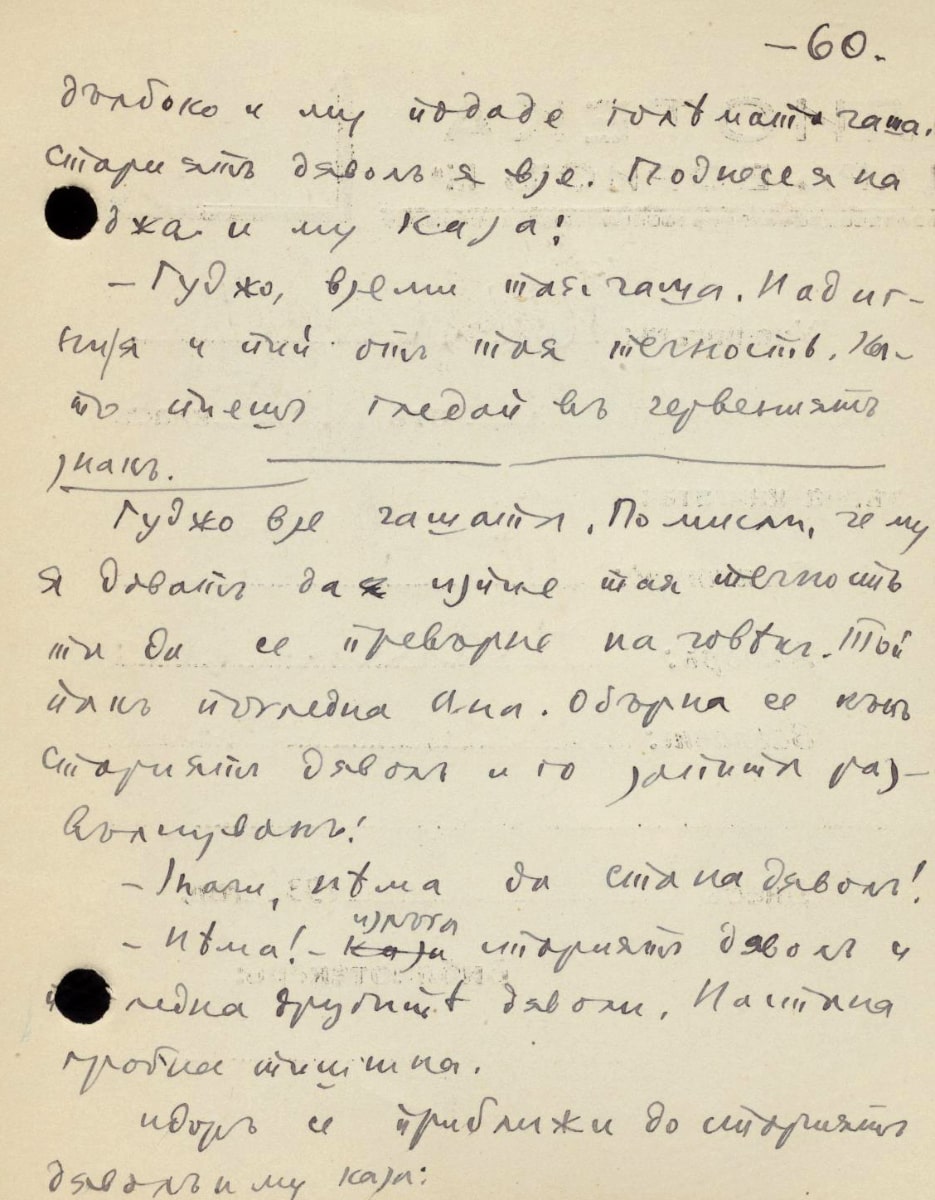 –60.
дълбоко и му подаде голѣмата чаша.
Стариятъ дяволъ я взе. Поднесе я на
джа и му каза:
– Гуджо, вземи тая чаша. Надиг-
ни я и пий отъ тая течность. Ка-
то пиешъ гледай въ червениятъ
знакъ.
Гуджо взе чашата. Помисли, че му
я даватъ да изпие тая течность
та да се превърне на човѣкъ. Той
пакъ погледна Ана. Обърна се къмъ
стариятъ дяволъ и го запита раз-
вълнуванъ:
– Значи, нѣма да стана дяволъ!
– Нѣма! – каза изрѫга стариятъ дяволъ и
погледна другитѣ дяволи. Настана
гробна тишина.
идоръ се приближи до стариятъ
дяволъ и му каза: